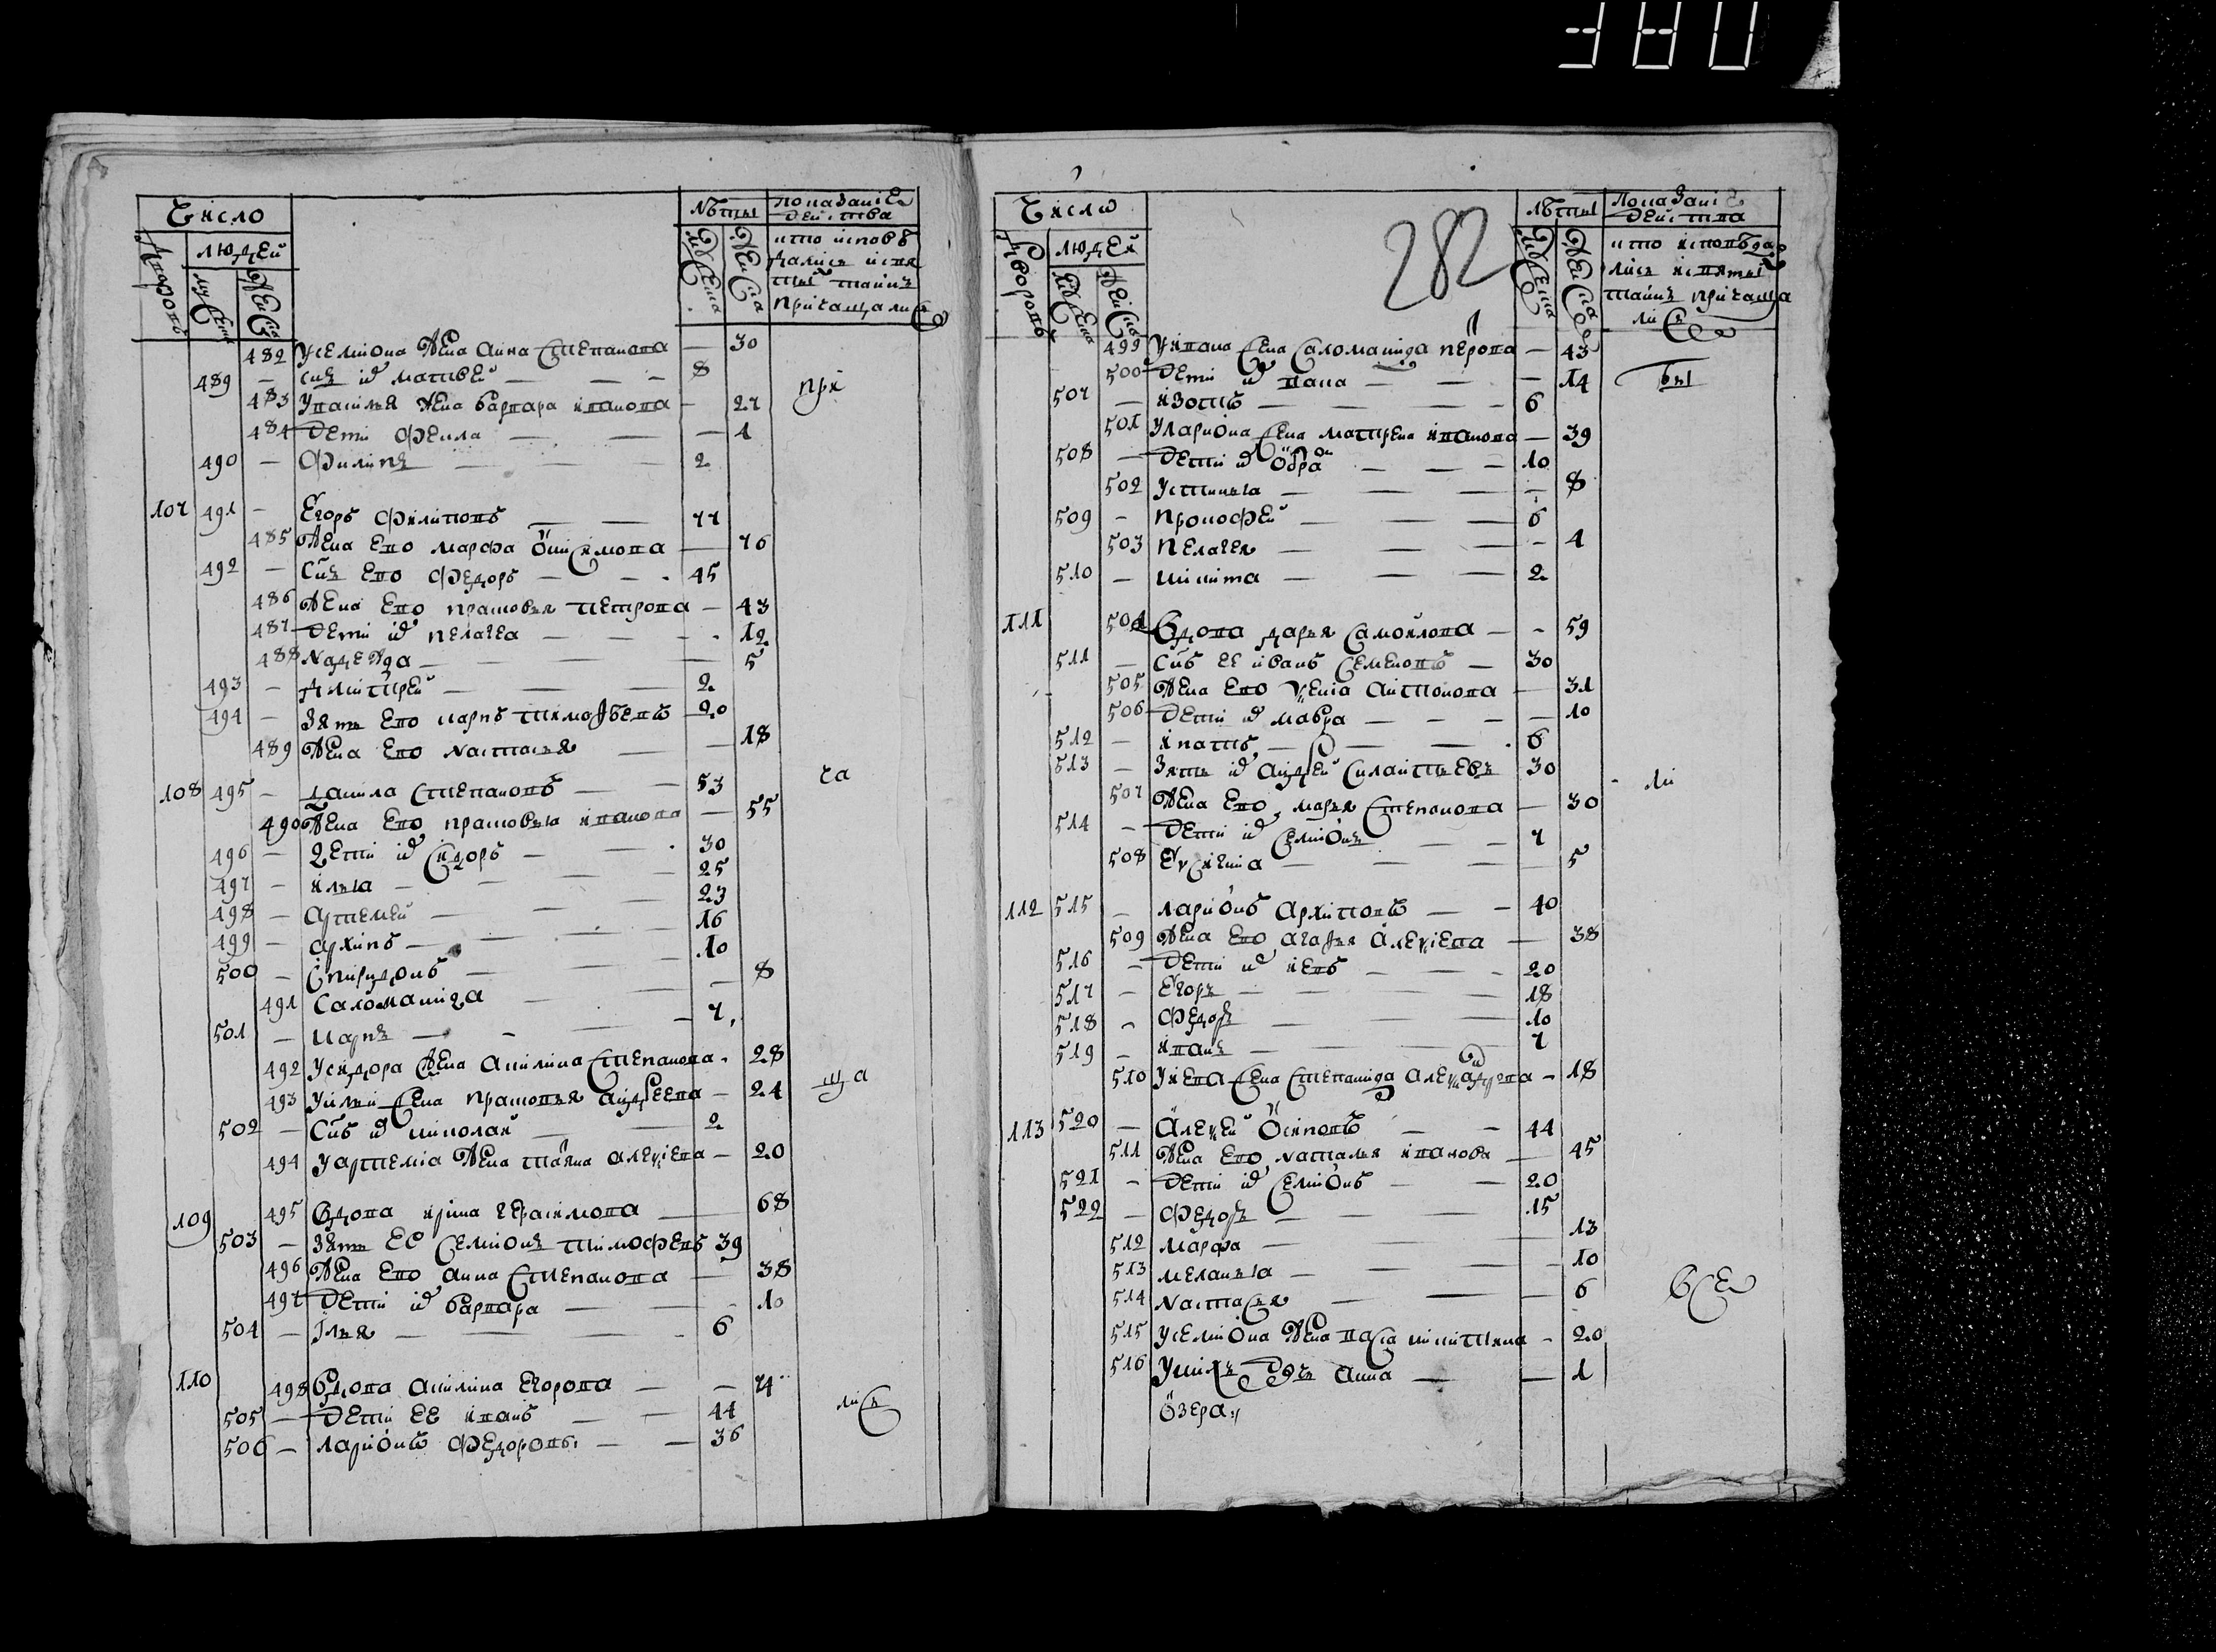 380
Число
лѣты
показание
действа
Дворовъ
людей
муска
женска
мужеска
женска
кто исповѣ
дались и свя
тыхъ тайнъ
причащались
482 У Семиона жена Анна Степанова — 30
489 — сынъ их Матвей — — 8
483 У Василья жена Варвара Иванова — 27
при
484 Дети Фекла — — — 1
490 — Филипъ — — 2
107 491 — Егоръ Филиповъ — — 77
485 Жена ево Марфа Онисимова — 76
492 — Сынъ ево Федоръ — — 45
486 Жена ево Прасковья Петрова — 43
487 Дети их Пелагея — — — 12
488 Надежда — — — 5
493 — Дмитрей — — — 2
494 — Зять ево Карпъ Тимофѣевъ 20
489 Жена ево Настасья — — 18
ча
108 495 — Данила Степановъ — — 53
490 Жена ево Прасковья Иванова — 55
496 — Дети их Сидоръ — — 30
497 — Илья — — — 25
498 — Артемей — — — 23
499 — Архипъ — — — 16
500 — Спиридонъ — — 10
491 Саломанида — — — 8
501 — Карпъ — — — 7
492 У Сидора жена Акилина Степанова — 28
493 У Ильи жена Прасковья Андреева — 24
ща
502 — Сынъ их Николай — — 2
494 У Артемия жена Татьяна Алексиева — 20
109 495 Вдова Ирина Герасимова — 68
503 — Зять ее Семионъ Тимофеевъ 39
496 Жена ево Анна Степанова — 38
497 Дети их Варвара — — — 10
504 — Илья — — — 6
110 498 Вдова Акилина Егорова — — 74
505 — Дети ее Иванъ — — 44
лись
506 — Ларионъ Федоровъ — — 36
282
Число
лѣты
показание
действа
Дворовъ
людей
мужеска
женска
мужеска
женска
кто исповѣда
лись и святых
тайнъ причаща
лись
499 У Ивана жена Саломанида Перова — 43
500 Дети их Вана — — — 14
бы
507 — Изотъ — — — 6
501 У Лариона жена Матрена Иванова — 39
508 — Дети их — — — 10
502 Устинья — — — 8
509 — Прокофей — — — 6
503 Пелагея — — — 4
510 — Никита — — — 2
111 504 Вдова Дарья Самойлова — — 59
511 — Сынъ ее Иванъ Семеновъ — 30
505 Жена ево Ксения Антонова — 31
506 Дети их Мавра — — — 10
512 — Ипатъ — — — 6
513 — Зять их Андрей Силантьевъ 30
ли
507 Жена ево Марья Степанова — 30
514 — Дети их Семионъ — — 7
508 Евгения — — — 5
112 515 — Ларионъ Архиповъ — — 40
509 Жена ево Агафья Алексиева — 38
516 — Дети их Иевъ — — 20
517 — Егоръ — — — 18
518 — Федоръ — — 10
519 — Иванъ — — — 7
510 У Иева жена Степанида Александрова — 18
113 520 — Алексей Осиповъ — — 44
511 Жена ево Наталья Иванова — 45
521 — Дети их Семионъ — — 20
522 — Федоръ — — — 15
512 Марфа — — — 13
513 Меланья — — — 10
514 Настасья — — — 6
все
515 У Семиона жена Васса Никитина — 20
516 У нихъ дочь Анна — — 1
Озера